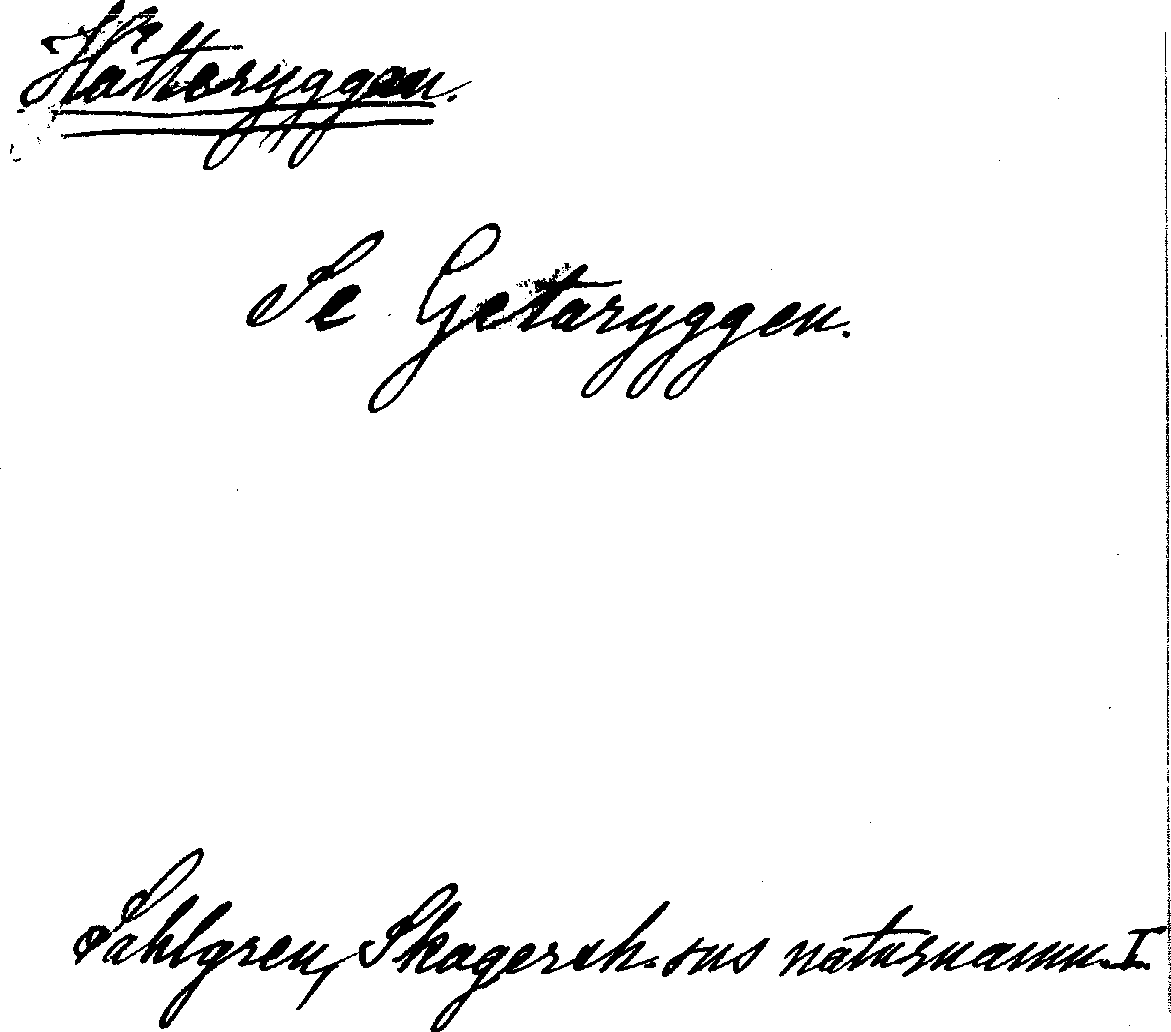 Hätteryggen.
Se Getaryggen.
Sahlgren, Skagersh. sns naturnamn. I.